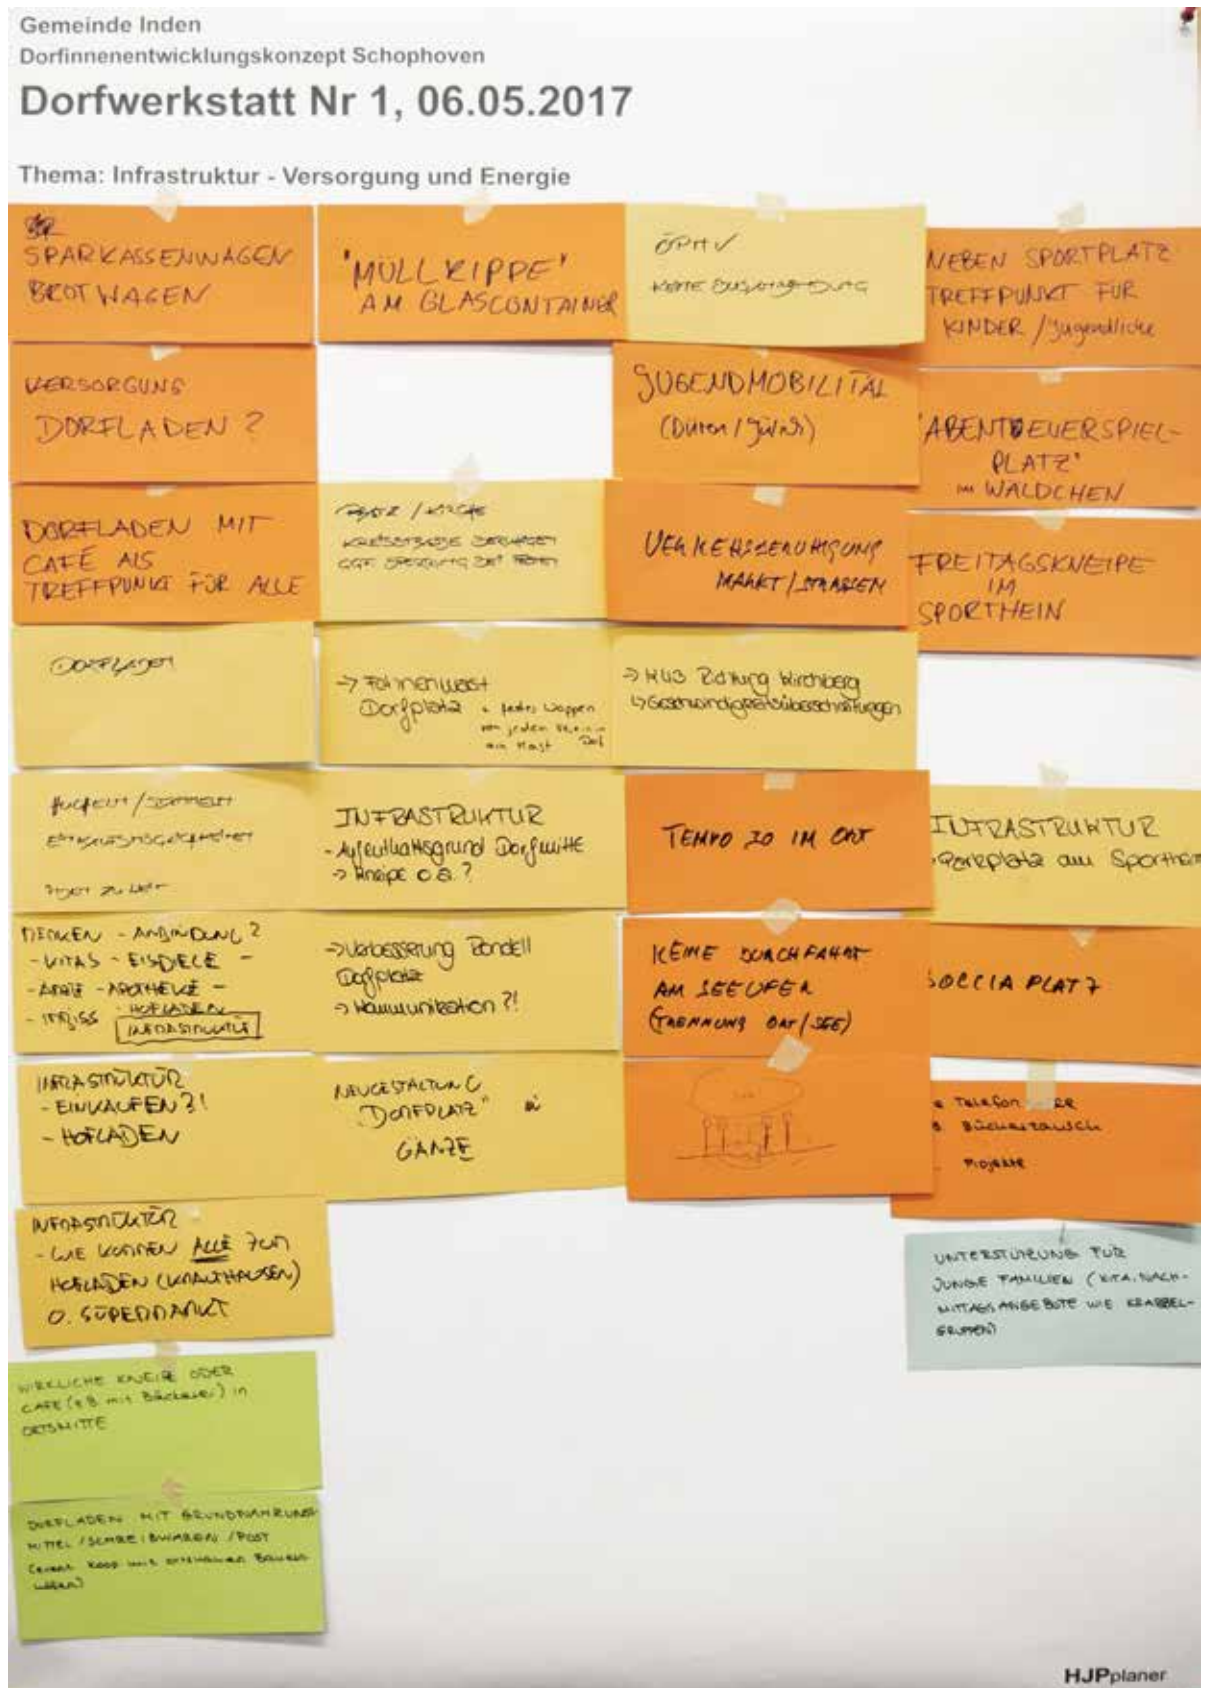 Gemeinde Inden
Dorfinnenentwicklungskonzept Schophoven
Dorfwerkstatt Nr 1, 06.05.2017
Thema: Infrastruktur - Versorgung und Energie
SPARKASSENWAGEN
BROTWAGEN
VERSORGUNG
DORFLADEN ?
DORFLADEN MIT
CAFÉ ALS
TREFFPUNKT FÜR ALLE
DORFLADEN
- ANBINDUNG ?
- VITAS - EISDIELE -
- ÄRZTE - APOTHEKE -
- IMBISS - HOFLADEN
INFRASTRUKTUR
INFRASTRUKTUR
- EINKAUFEN ?!
- HOFLADEN
INFRASTRUKTUR
- WIE KOMMEN ALLE ZUM
HOFLADEN (KRAUTHAUSEN)
O. SUPERMARKT
WIRKLICHE KNEIPE ODER
CAFE (z.B. mit Bäckerei) in
ORTSMITTE
DORFLADEN MIT GRUNDNAHRUNGS-
MITTEL / SCHREIBWAREN / POST
'MÜLLKIPPE'
AM GLASCONTAINER
PLATZ / KIRCHE
KREISSTRASSE
GGF. SPERRUNG
-> Fahnenmast
Dorfplatz + jedes Wappen
von jedem Verein im
am Mast Dorf
INFRASTRUKTUR
- Aufenthaltsgrund Dorfmitte
-> Kneipe o.ä. ?
-> Verbesserung Rondell
Dorfplatz
-> Kommunikation ?!
NEUGESTALTUNG
"DORFPLATZ"
GANZE
ÖPNV
KEINE BUSANBINDUNG
JUGENDMOBILITÄT
(Düren / Jülich)
VERKEHRSBERUHIGUNG
MARKT / STRASSEN
-> Richtung Kirchberg
↳ Geschwindigkeitsüberschreitungen
TEMPO 30 IM ORT
KEINE DURCHFAHRT
AM SEEUFER
(TRENNUNG ORT / SEE)
NEBEN SPORTPLATZ
TREFFPUNKT FÜR
KINDER / Jugendliche
'ABENTEUERSPIEL-
PLATZ'
im WÄLDCHEN
FREITAGSKNEIPE
IM
SPORTHEIM
INFRASTRUKTUR
- Parkplatz am Sportheim
BOCCIA PLATZ
Telefon
Büchertausch
Projekte
UNTERSTÜTZUNG FÜR
JUNGE FAMILIEN (KITA, NACH-
MITTAGSANGEBOTE WIE KRABBEL-
GRUPPEN)
HJPplaner